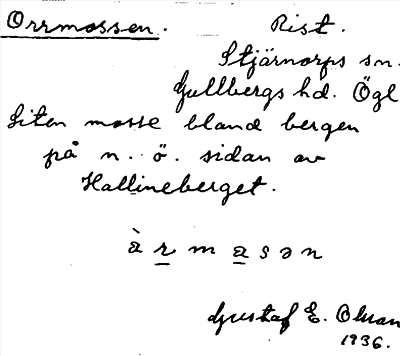 Orrmossen. Rist.
Stjärnorps sn.
Gullbergs hd. Ögl
Liten mosse bland bergen
på n. ö. sidan av
Hallineberget.
àrmasən
Gustaf E. Olsson
1936.